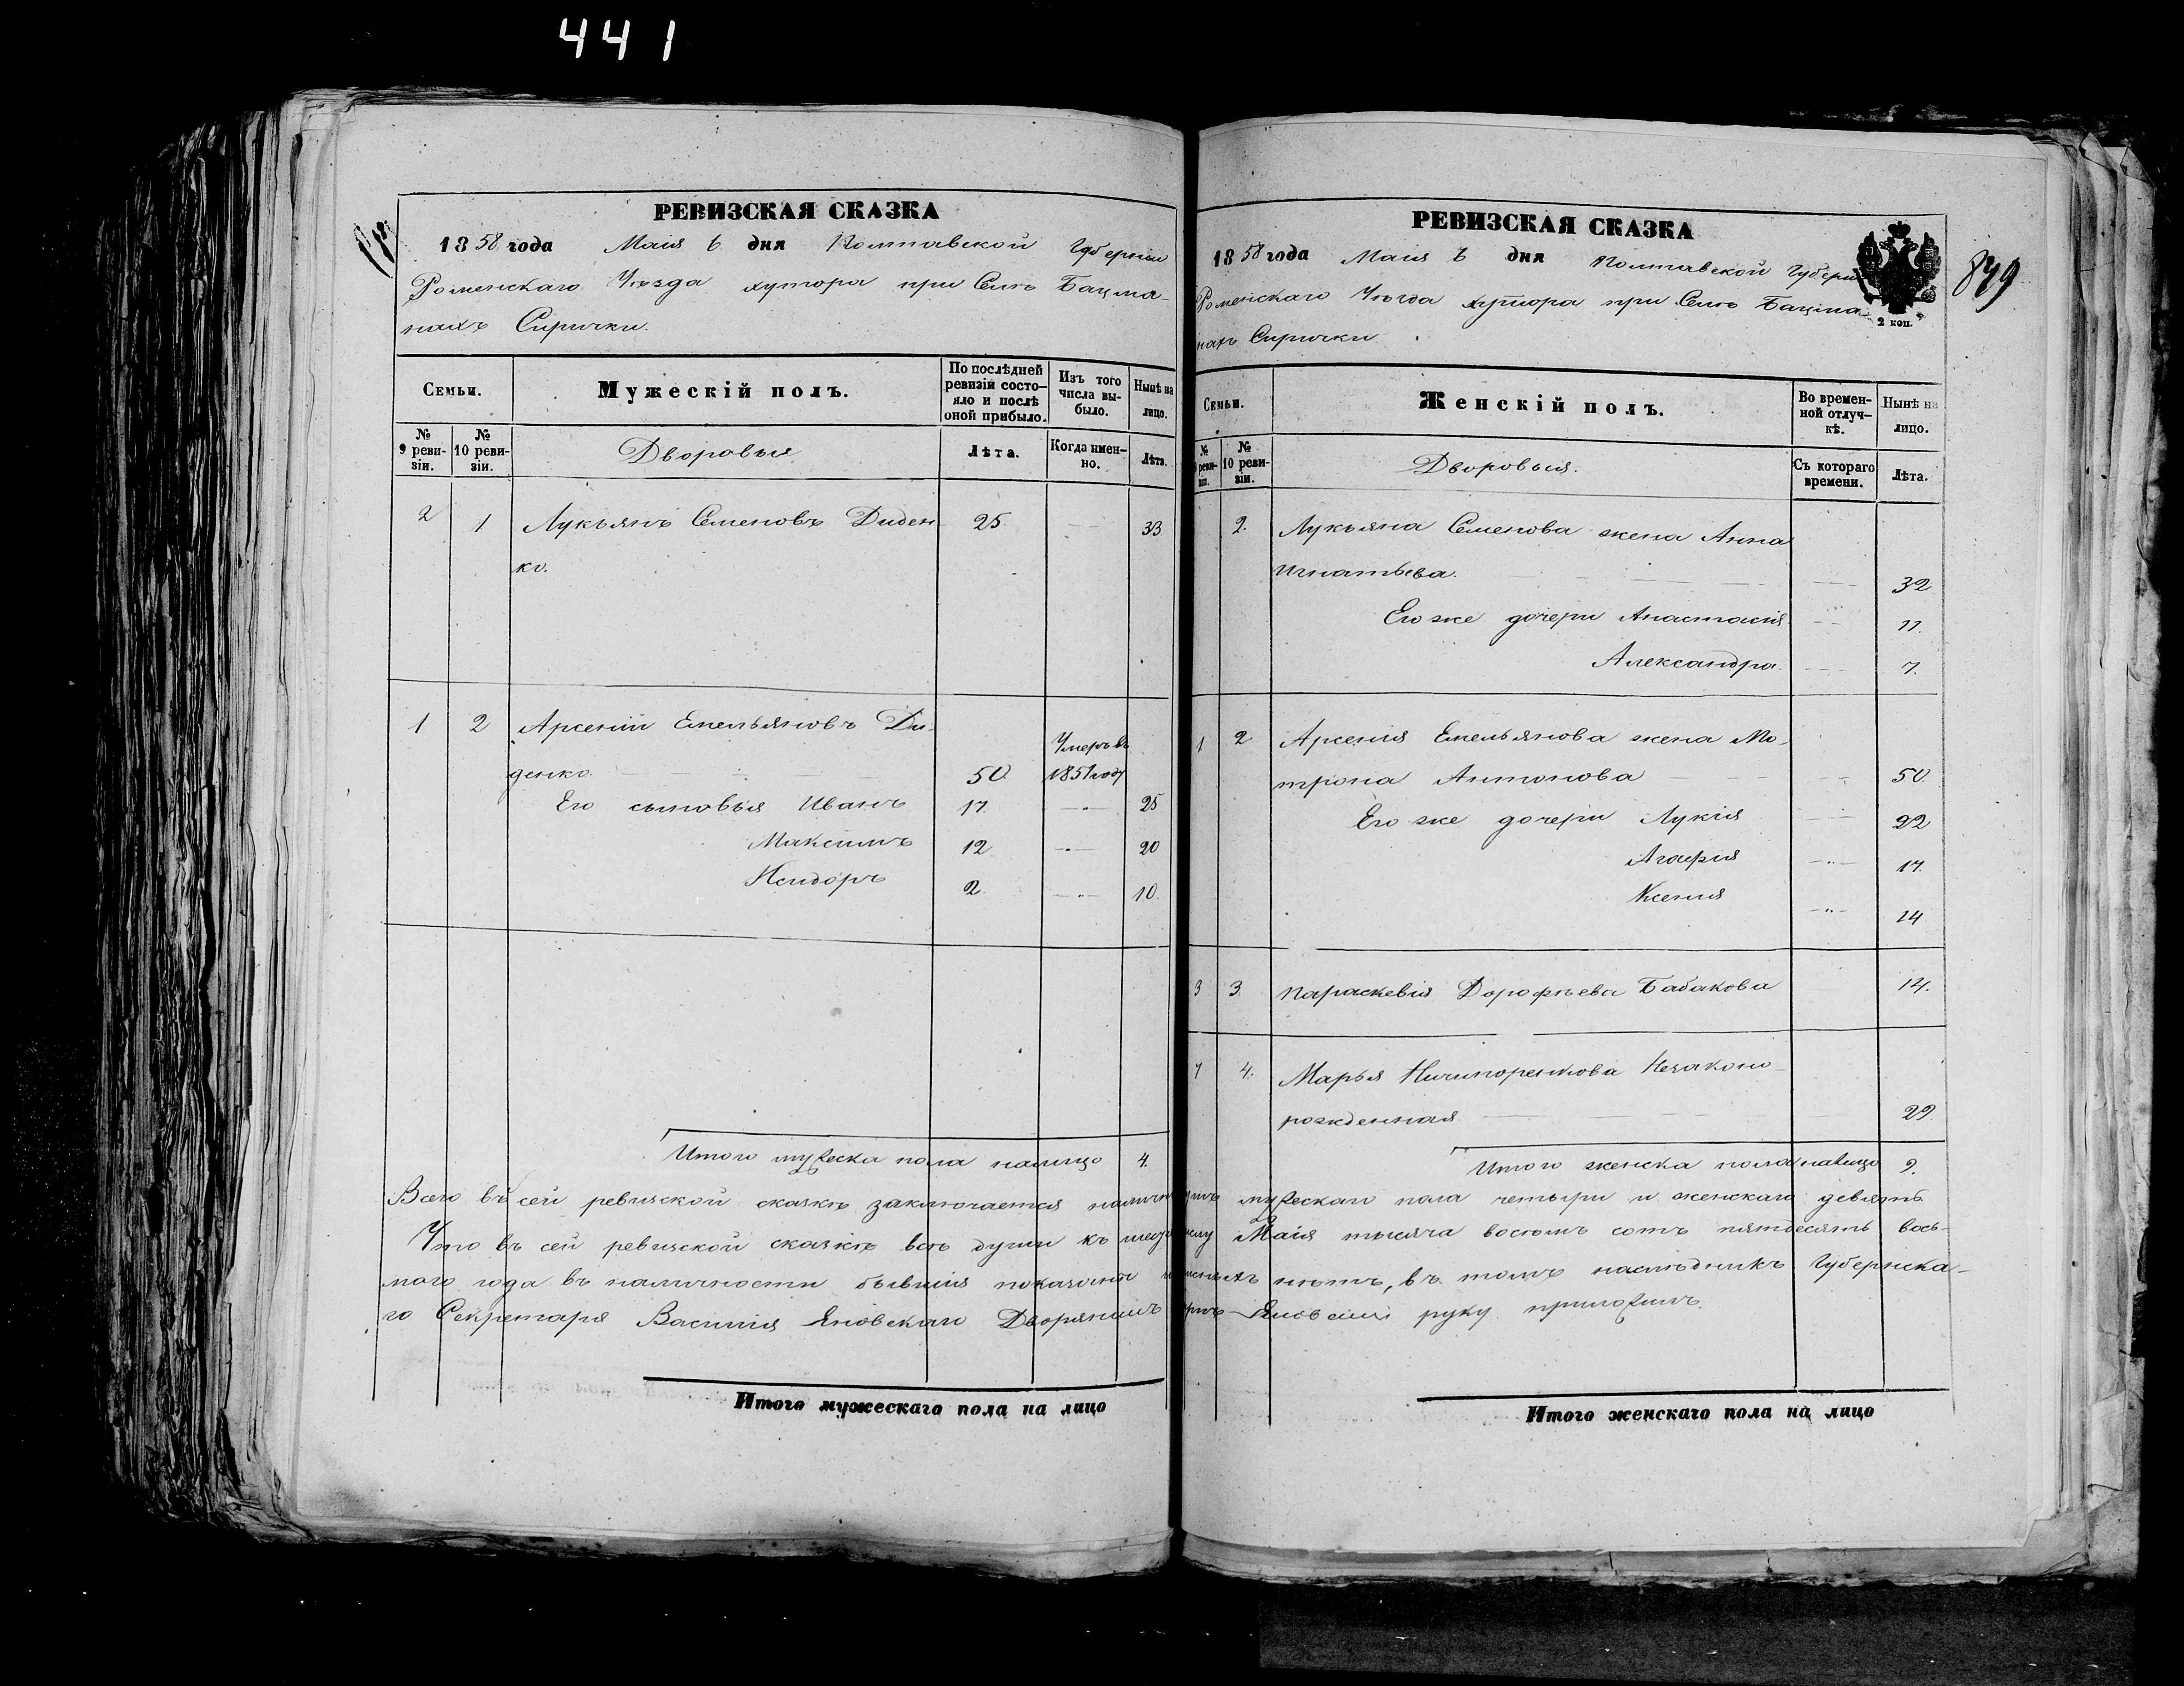 441
РЕВИЗСКАЯ СКАЗКА
1858 года Маія 6 дня Полтавской Губерніи
Роменскаго Уѣзда хутора при Селѣ Бацма-
нахъ Сирички.
Семьи.
Мужескій полъ.
По послѣдней ревизіи состо-яло и послѣ оной прибыло.
Изъ того числа вы-было.
Нынѣ на лицо.
№ 9 реви-зіи.
№ 10 реви-зіи.
Дворовыя
Лѣта.
Когда имен-но.
Лѣта.
2 1 Лукъянъ Семеновъ Диден 25. 33
ко.
1 2 Арсеній Емельяновъ Ди-
Умеръ въ
денко. 50. 1851 году
Его сыновья Иванъ 17. 25
Максимъ 12 20
Исидоръ 2. 10.
Итого мужеска пола налицо 4.
РЕВИЗСКАЯ СКАЗКА
1858 года Маія 6 дня Полтавской Губерн
Роменскаго Уѣзда хутора при Селѣ Бацма-
нахъ Сирички
2 коп.
849
Семьи.
Женскій полъ.
Во времен-ной отлуч-кѣ.
Нынѣ на лицо.
№ реви-зіи.
№ 10 реви-зіи.
Дворовыя.
Съ котораго времени.
Лѣта.
2. Лукъяна Семенова жена Анна
Игнатьева. 32
Его же дочери Анастасія 11.
Александра. 7.
1 2 Арсенія Емельянова жена Мо-
трона Антонова 50.
Его же дочери Лукія 22
Агафія 17.
Ксенія 14
3 3. Параскевія Дорофѣева Бабакова 14.
4. Марья Ничипоренкова Незаконо-
рожденная 29.
Итого женска пола налицо 9.
Всего въ сей ревизской сказкѣ заключается мужескаго пола четыри и женскаго девять
Что въ сей ревизской сказкѣ всѣ души къ Маія тысяча восемь сотъ пятдесятъ вось-
маго года въ наличности бывшія показаны нѣтъ, въ томъ наслѣдникъ Губернска-
го Секретаря Василія Яновскаго Дворянинъ Яновскій руку приложилъ.
Итого мужескаго пола на лицо
Итого женскаго пола на лицо